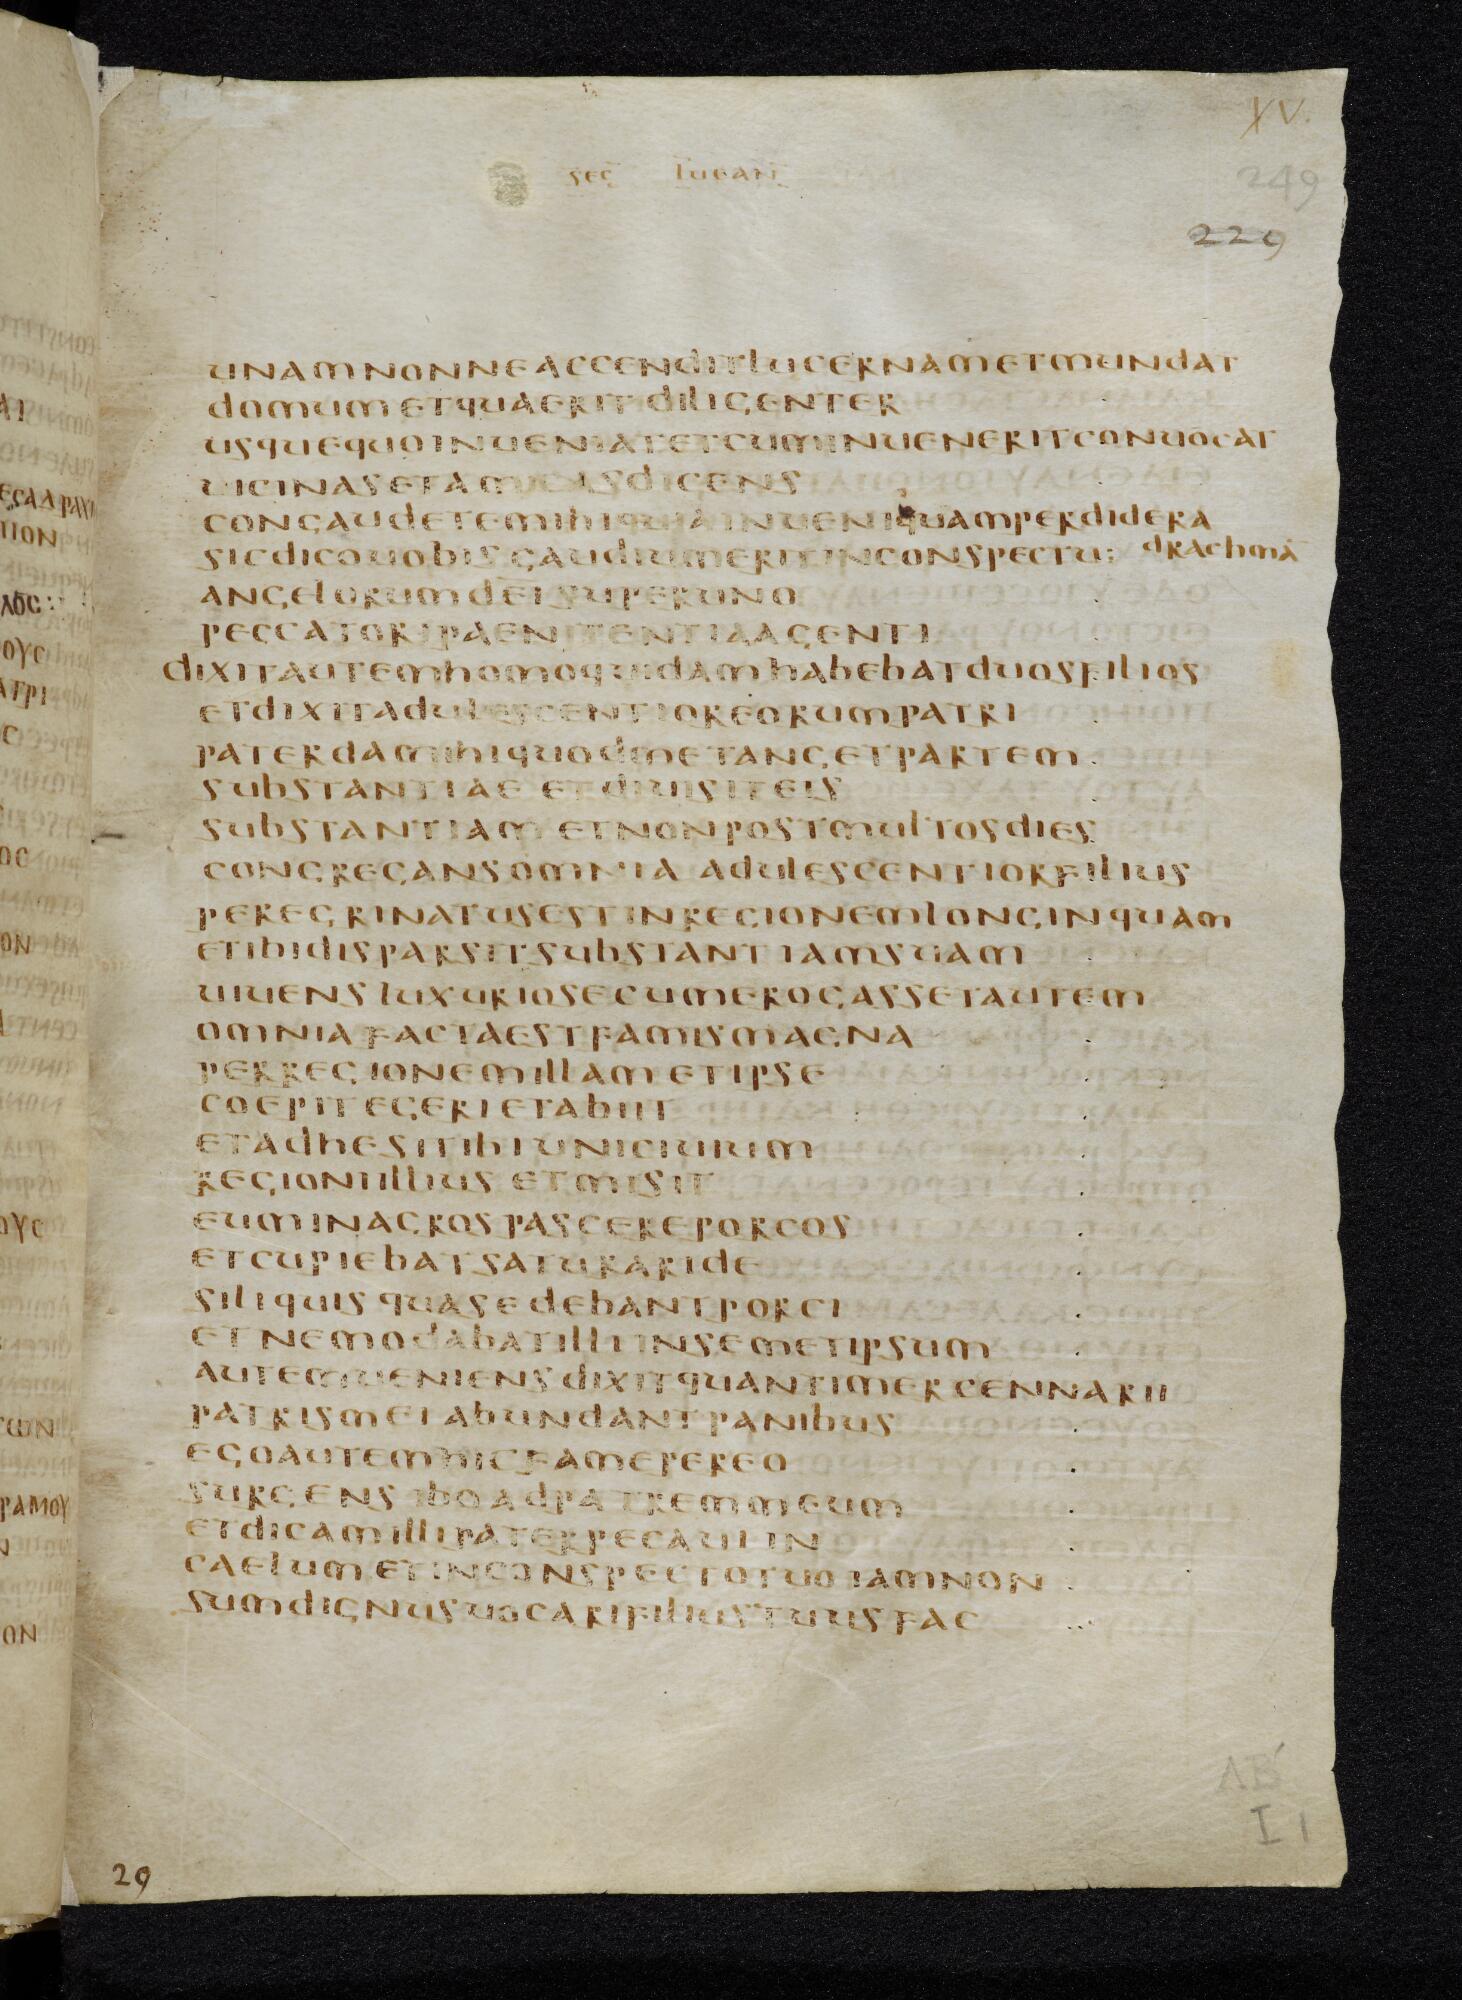 XV.
sec lucan
249
229
unamnonneaccenditlucernametmundat
domumetquaeritdiligenter
usquequoinueniatetcuminueneritconuocat
uicinasetamicasdicens
congaudetemihiquiainueniquamperdidera
sicdicouobisgaudiumeritinconspectu: drachmā
angelorumdeisuperuno
peccatoripaenitentiaagenti
dixitautemhomoquidamhabebatduosfilios
etdixitadulescentioreorumpatri
paterdamihiquodmetangetpartem
substantiae etdiuisiteis
substantiam etnonpostmultosdies
congregansomnia adulescentiorfilius
peregrinatusestinregionemlonginquam
etibidisparsitsubstantiamsuam
uiuensluxuriosecumerogassetautem
omniafactaestfamismagna
perregionemillametipse
coepitegerietabiit
etadhesitibiuniciuium
regioniillius etmisit
euminagrospascereporcos
etcupiebatsaturaride
siliquisquasedebantporci
etnemodabatilliinsemetipsum
autemueniensdixitquantimercennarii
patrismeiabundantpanibus
egoautemhicfamepereo
surgensiboadpatremmeum
etdicamillipaterpecauiin
caelumetinconspectotuoiamnon
sumdignusuocarifiliustuusfac
ΛΒ
I 1
29